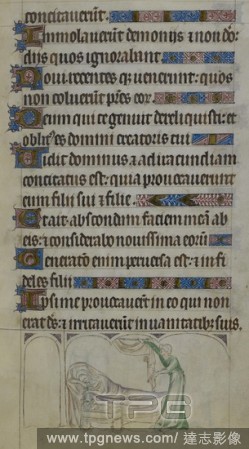 concitaverūt.
Immolaverūt demonijs ⁊ non do
dijs quos ignorabant
Noui recentes q; venerunt: quos
non coluerunt p̄res eor.
Deum qui te genuit dereliquisti: et
oblit⁹ es domini creatoris tui
Vidit dominus ⁊ ad iracundiam
concitatus est: quia provocaverunt
eum filii sui ⁊ filie.
Et ait: abscondam faciem meā ab
eis: ⁊ considerabo novissima eorū
Generatō enim perversa est: ⁊ infi
deles filii
Ipsi me provocavert̄ in eo qui non
erat de⁹: ⁊ irritaverūt in vanitatib; suis.
TPG
www.tpgnews.com/ 達志影像